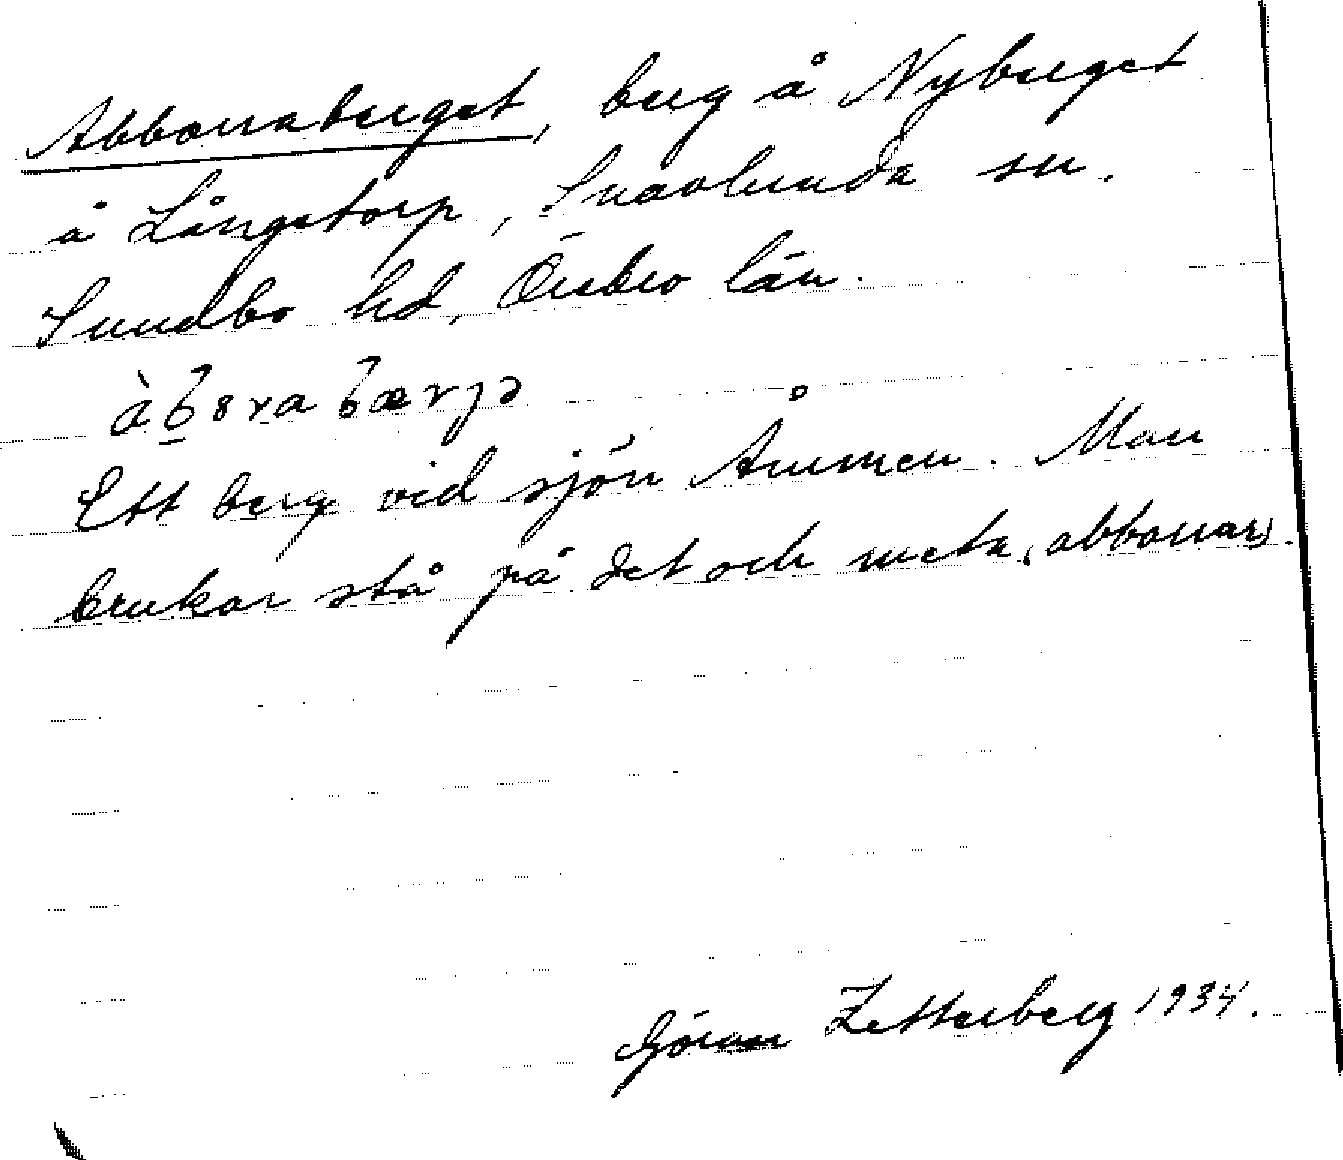 Abborraberget, berg å Nyberget
å Långstorp, Snavlunda sn.
Sundbo hd, Örebro län.
Ett berg vid sjön Åmmen. Man
brukar stå på det och meta (abborrar).
Göran Zetterberg 1934.